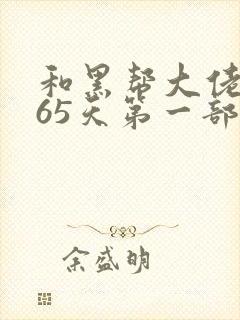 和黑帮大佬
65天第一部
余盛明